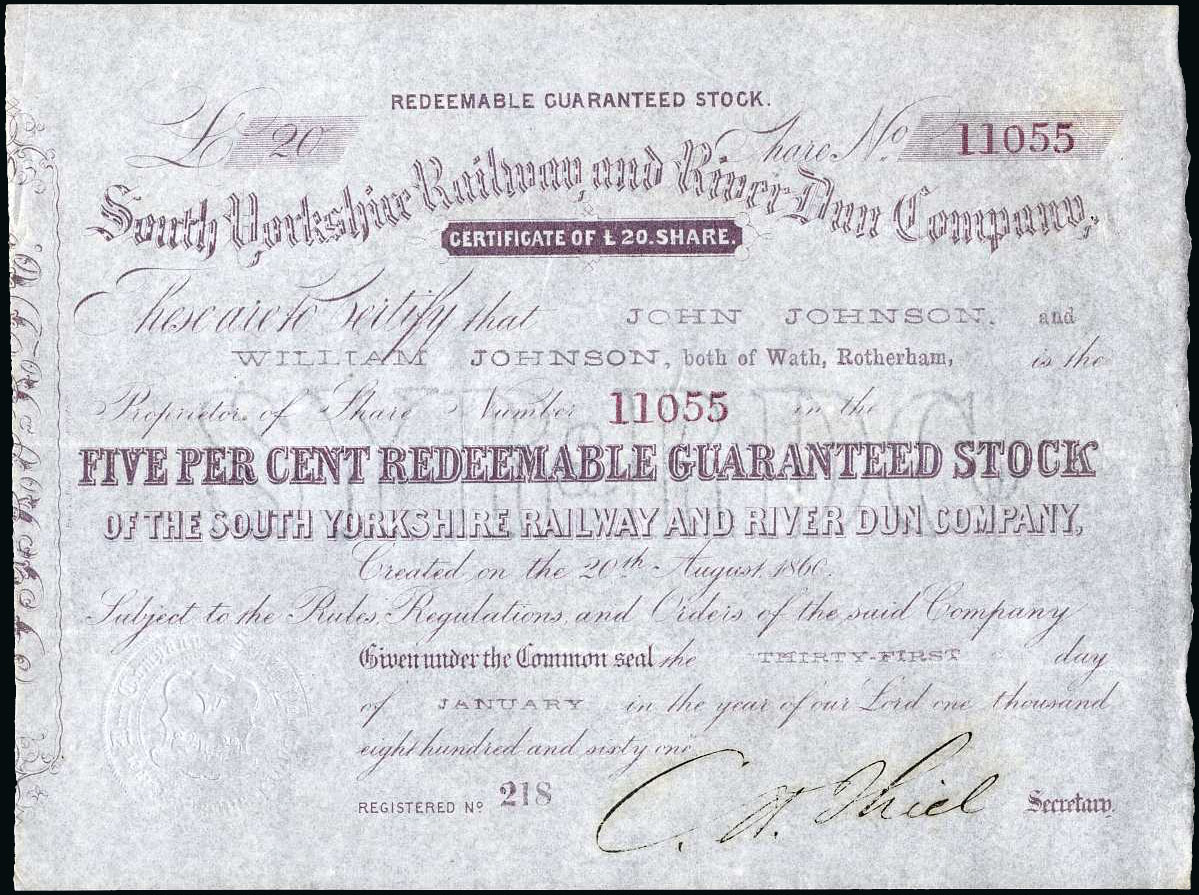 REDEEMABLE GUARANTEED STOCK.
£ 20 Share No. 11055
South Yorkshire Railway, and River Dun Company,
CERTIFICATE OF £20. SHARE.
These are to Certify that JOHN JOHNSON, and
WILLIAM JOHNSON, both of Wath, Rotherham, is the
Proprietor of Share Number 11055 in the
FIVE PER CENT REDEEMABLE GUARANTEED STOCK
OF THE SOUTH YORKSHIRE RAILWAY AND RIVER DUN COMPANY,
Created on the 20th August, 1860.
Subject to the Rules, Regulations, and Orders of the said Company
Given under the Common seal the THIRTY-FIRST day
of JANUARY in the year of our Lord one thousand
eight hundred and sixty one
REGISTERED No 218
C. W. Thiel Secretary.